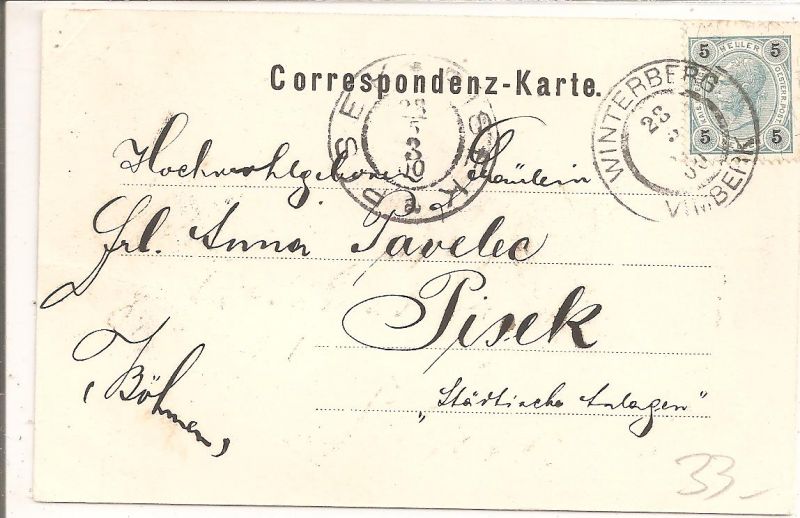 Correspondenz-Karte.
5 HELLER 5
5 5
WINTERBERG
28
VIMBERK
PISEK
28
Hochwohlgeboren Fräulein
Frl. Anna Pavelec
Pisek
(Böhmen)
„Städtische Anlagen"
33-